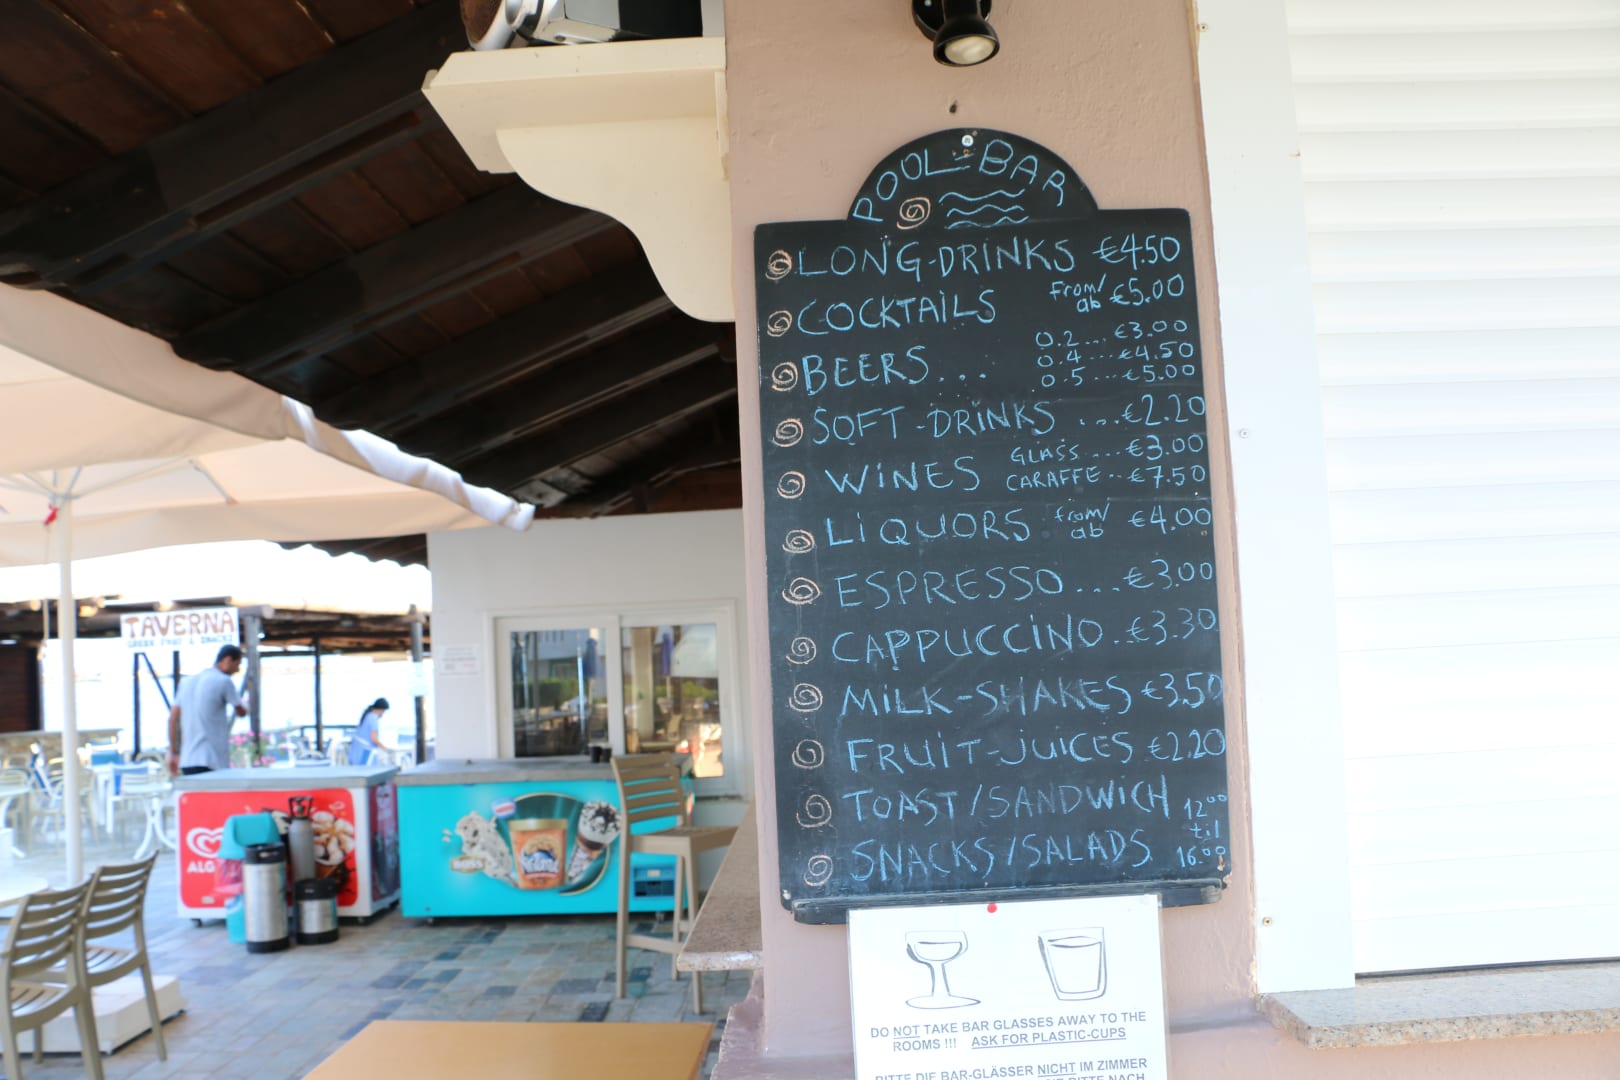 POOL-BAR
LONG-DRINKS €4.50
COCKTAILS from/ab €5.00
BEERS... 0.2... €3.00
0.4... €4.50
0.5... €5.00
SOFT-DRINKS ...€2.20
WINES GLASS....€3.00
CARAFFE..€7.50
LIQUORS from/ab €4.00
ESPRESSO...€3.00
CAPPUCCINO.€3.30
MILK-SHAKES €3,50
FRUIT-JUICES €2.20
TOAST/SANDWICH 12°°
til
SNACKS/SALADS 16.°°
DO NOT TAKE BAR GLASSES AWAY TO THE
ROOMS !!! ASK FOR PLASTIC-CUPS
BITTE DIE BAR-GLÄSSER NICHT IM ZIMMER
BITTE NACH
TAVERNA
ALG